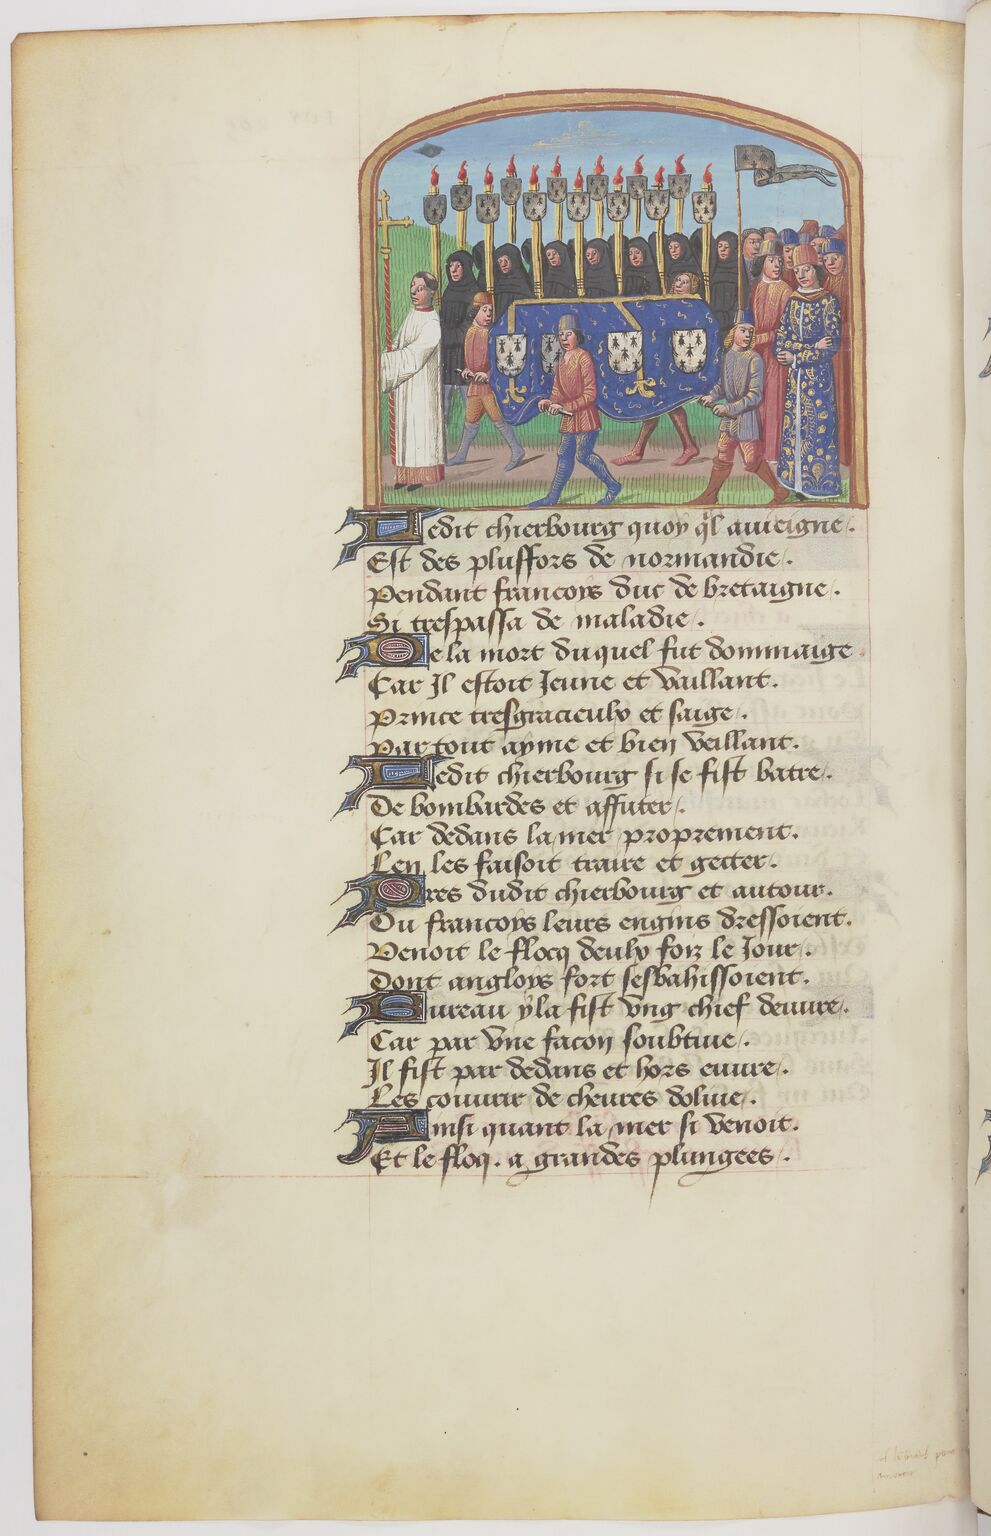 Ledit chierbourg quoy ql auieigne.
Est des plusfors de normandie.
Pendant francoys duc de bretaigne.
Si trespassa de maladie.
De la mort duquel fut dommaige
Car Il estoit Jeune et vaillant.
Prince tresgracieulx et saige.
Par tout ayme et bien veillant.
Ledit chierbourg si se fist batre.
De bombardes et affuter.
Car dedans la mer proprement.
Len les faisoit traire et gecter.
Pres dudit chierbourg et autour.
Ou francoys leurs engins dressoient.
Venoit le flocq deulx foiz le Jour.
Dont angloys fort sesbahissoient.
Bureau yla fist vng chief deuure.
Car par vne facon soubtiue.
Il fist par dedans et hors euure.
Les couurir de cheures doliue.
Ainsi quant la mer si venoit.
Et le floq. a grandes plungees.